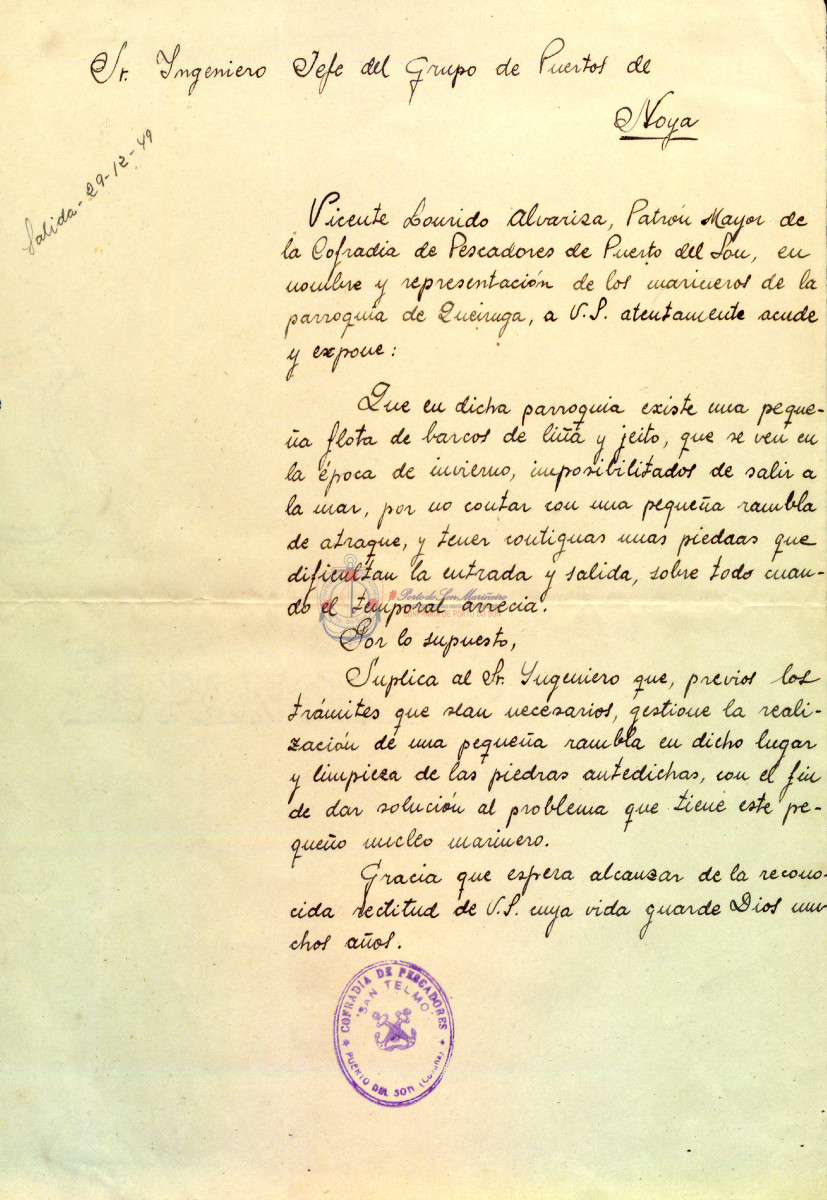 Sr. Ingeniero Jefe del Grupo de Puertos de
Noya
Salida - 29-12-49
Vicente Lourido Alvariza, Patrón Mayor de
la Cofradia de Pescadores de Puerto del Son, en
nombre y representación de los marineros de la
parroquia de Queiruga, a V.S. atentamente acude
y expone:
Que en dicha parroquia existe una peque-
ña flota de barcos de liñá y jeito, que se ven en
la época de invierno, imposibilitados de salir a
la mar, por no contar con una pequeña rambla
de atraque, y tener contiguas unas piedaas que
dificultan la entrada y salida, sobre todo cuan-
do el temporal arrecia.
Porto do Son Mariñeiro
Por lo supuesto,
Suplica al Sr. Ingeniero que, previos los
trámites que sean necesarios, gestione la reali-
zación de una pequeña rambla en dicho lugar
y limpieza de las piedras antedichas, con el fin
de dar solución al problema que tiene este pe-
queño nucleo marinero.
Gracia que espera alcanzar de la recono-
cida rectitud de V.S. cuya vida guarde Dios mu-
chos años.
COFRADIA DE PESCADORES
"SAN TELMO"
PUERTO DEL SON (Coruña)